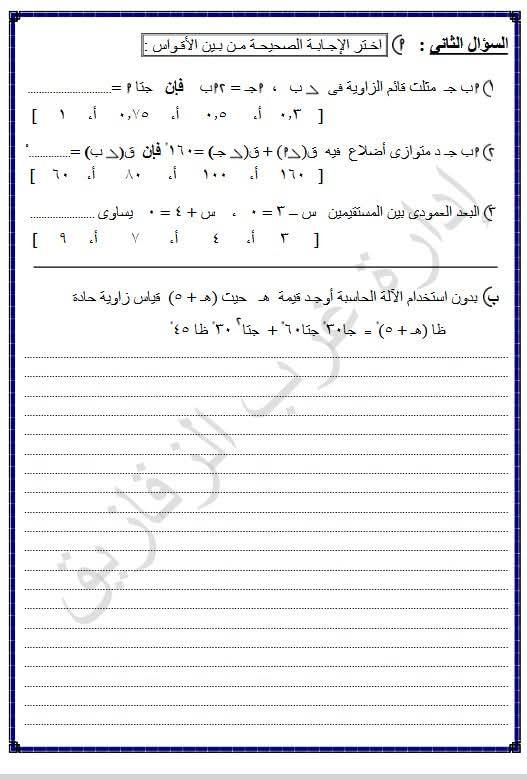 السؤال الثانى : ٩) اختر الإجابة الصحيحة من بين الأقواس :
١) ٩ب جـ مثلث قائم الزاوية فى ∠ ب ، ٩جـ = ٢٩ب فإن جتا ٩ = ..................
[ ٠,٣ أ، ٠,٥ أ، ٠,٧٥ أ، ١ ]
٢) ٩ب جـ د متوازى أضلاع فيه ق(∠٩) + ق(∠ جـ) = ١٦٠° فإن ق(∠ ب) = ..............°
[ ١٦٠ أ، ١٠٠ أ، ٨٠ أ، ٦٠ ]
٣) البعد العمودى بين المستقيمين س – ٣ = ٠ ، س + ٤ = ٠ يساوى ......................
[ ٣ أ، ٤ أ، ٧ أ، ٩ ]
ب) بدون استخدام الآلة الحاسبة أوجد قيمة هـ حيث (هـ + ٥) قياس زاوية حادة
ظا (هـ + ٥)° = جا٣٠° جتا٦٠° + جتا٢ ٣٠° ظا ٤٥°
إدارة غرب الزقازيق